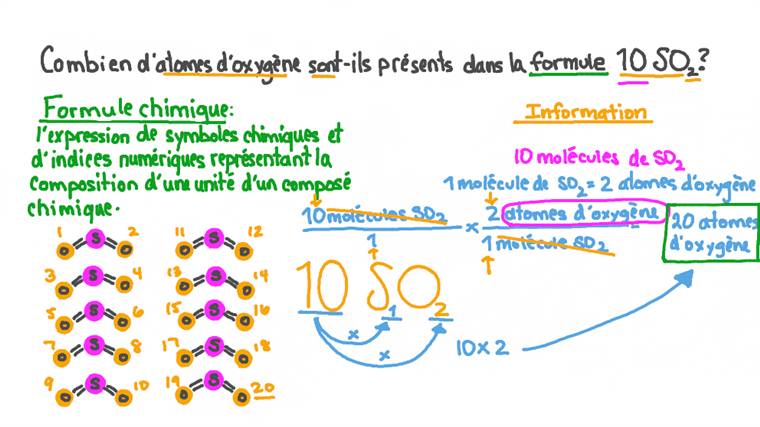 Combien d'atomes d'oxygène sont-ils présents dans la formule 10 SO₂?
Formule chimique:
l'expression de symboles chimiques et
d'indices numériques représentant la
composition d'une unité d'un composé
chimique.
Information
10 molécules de SO₂
1 molécule de SO₂ = 2 atomes d'oxygène
10 molécules SO₂ × 2 atomes d'oxygène =
1 1 molécule SO₂
20 atomes
d'oxygène
10 SO
1 2
× ×
10 × 2
1 S 2 11 S 12
O O O O
3 S 4 13 S 14
O O O O
5 S 6 15 S 16
O O O O
7 S 8 17 S 18
O O O O
9 S 10 19 S 20
O O O O